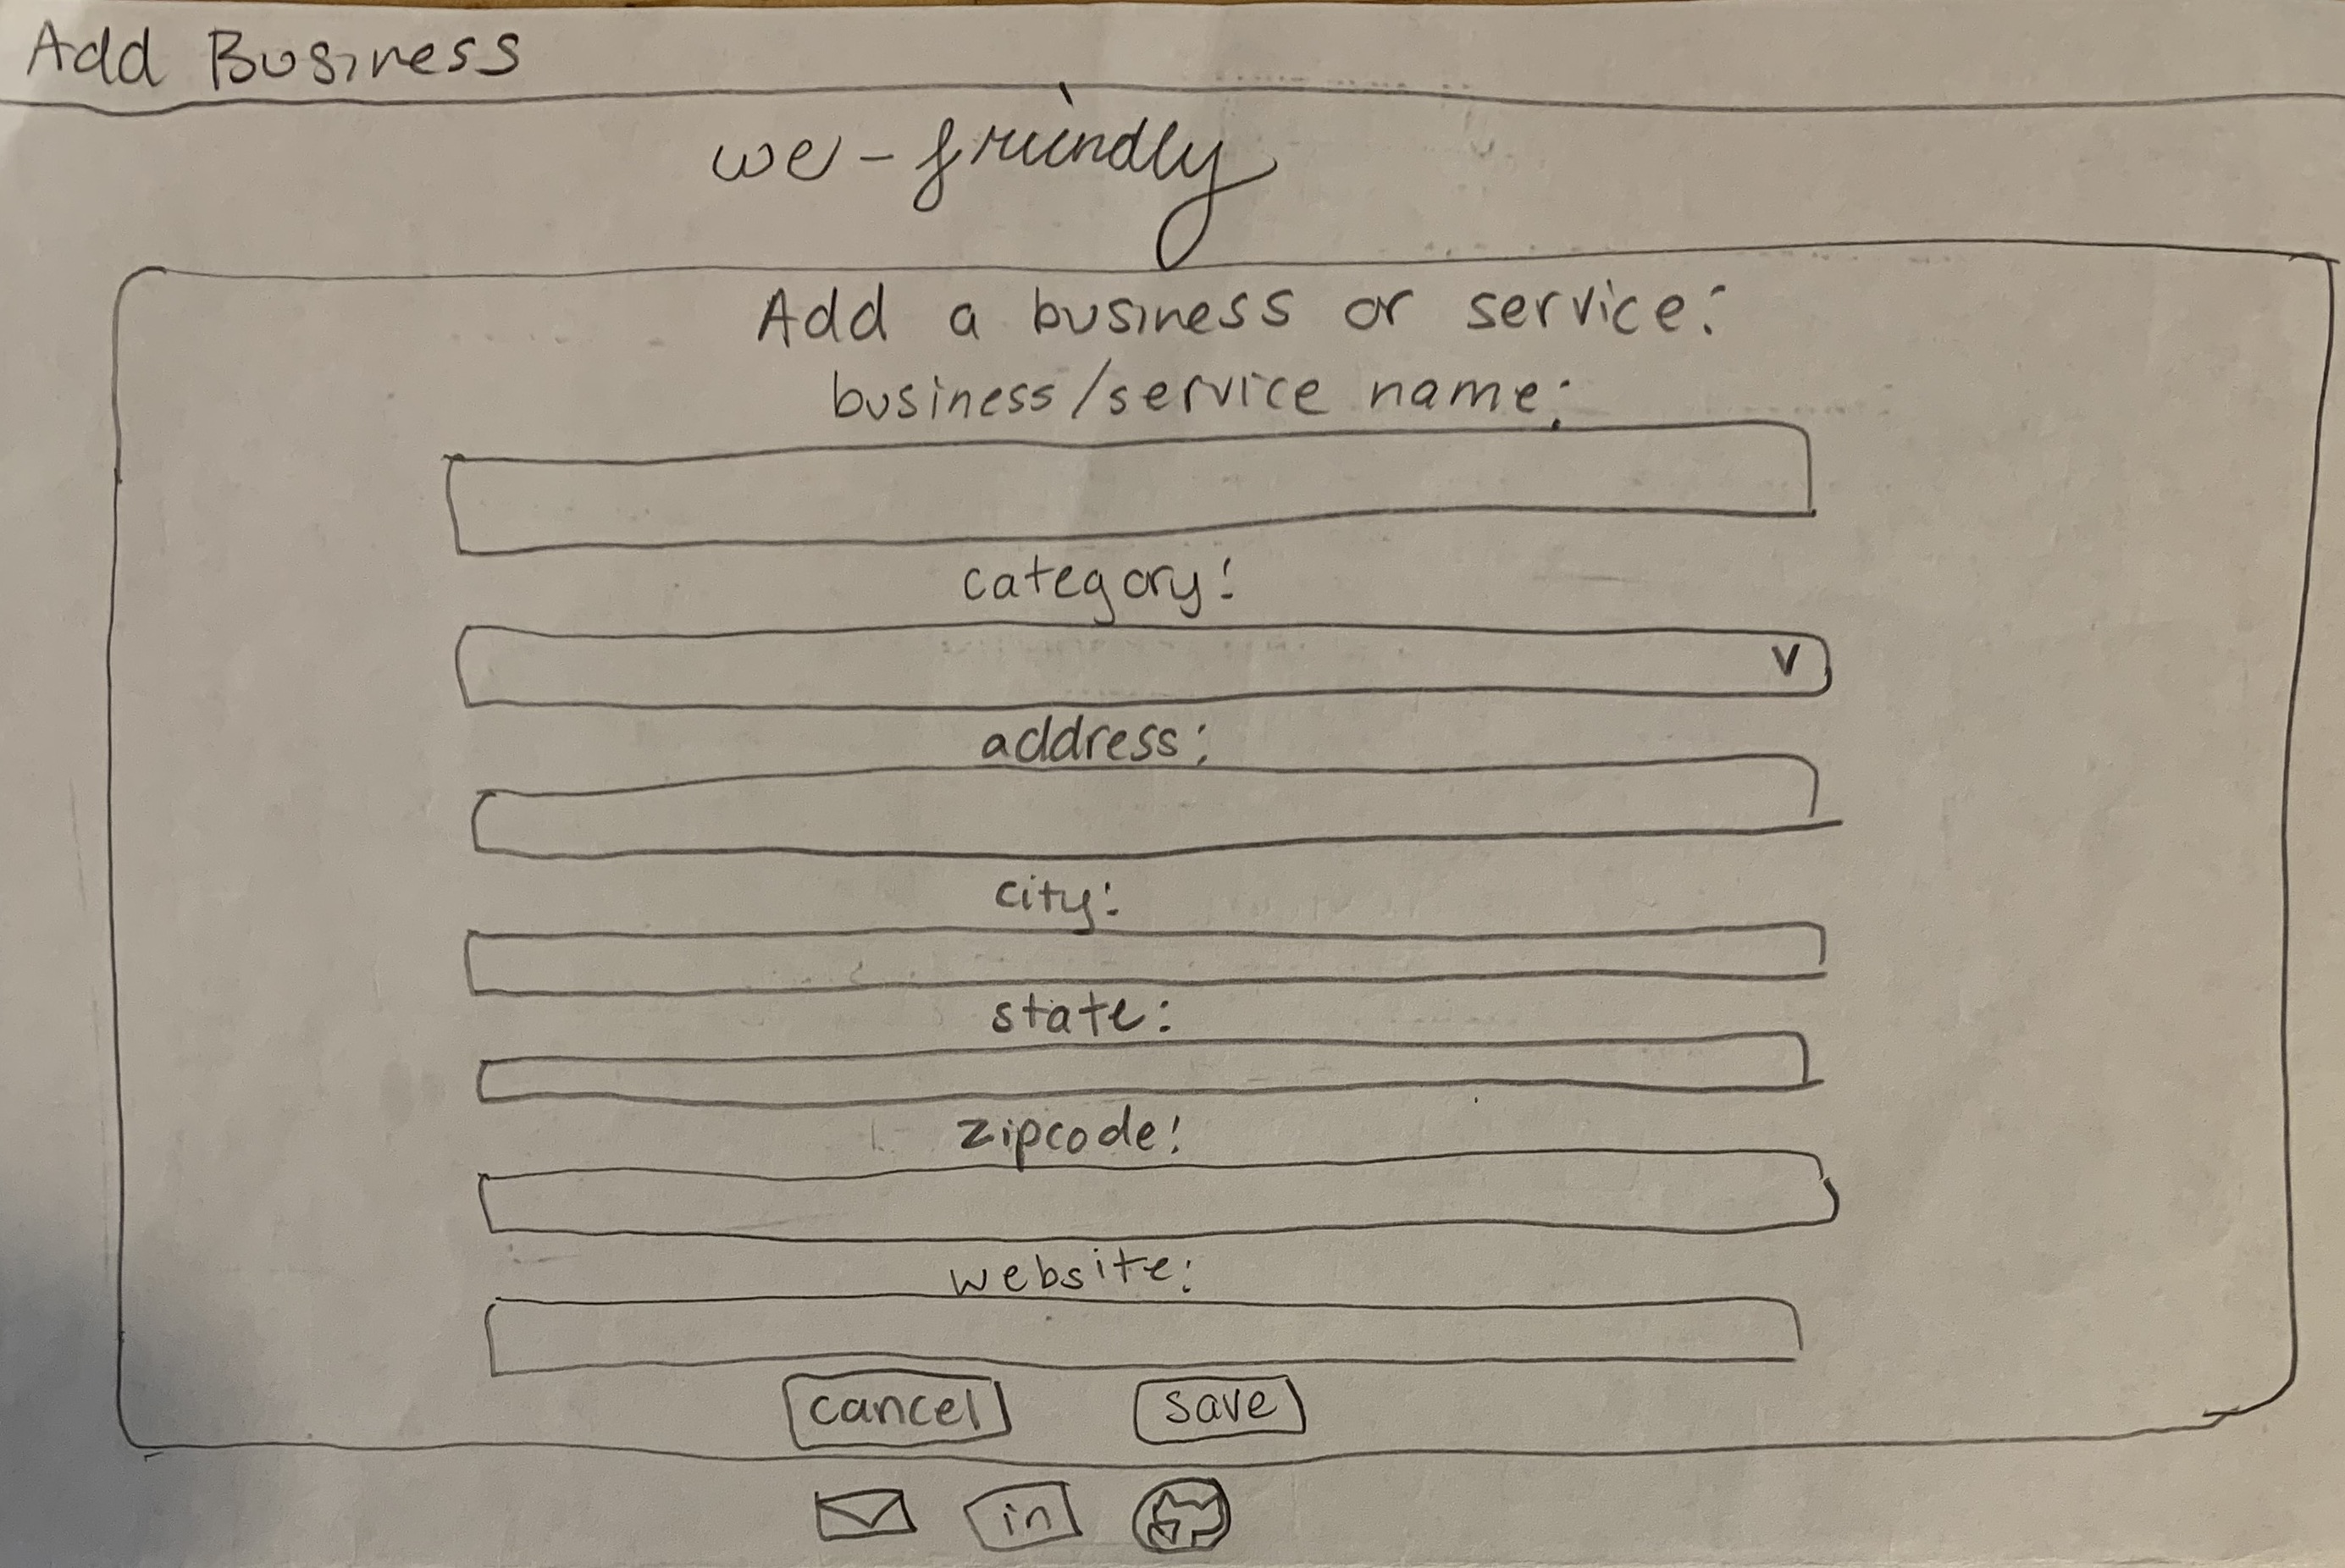 Add Business
we-friendly
Add a business or service:
business/service name:
category:
v
address:
city:
state:
zipcode:
website:
cancel save
in